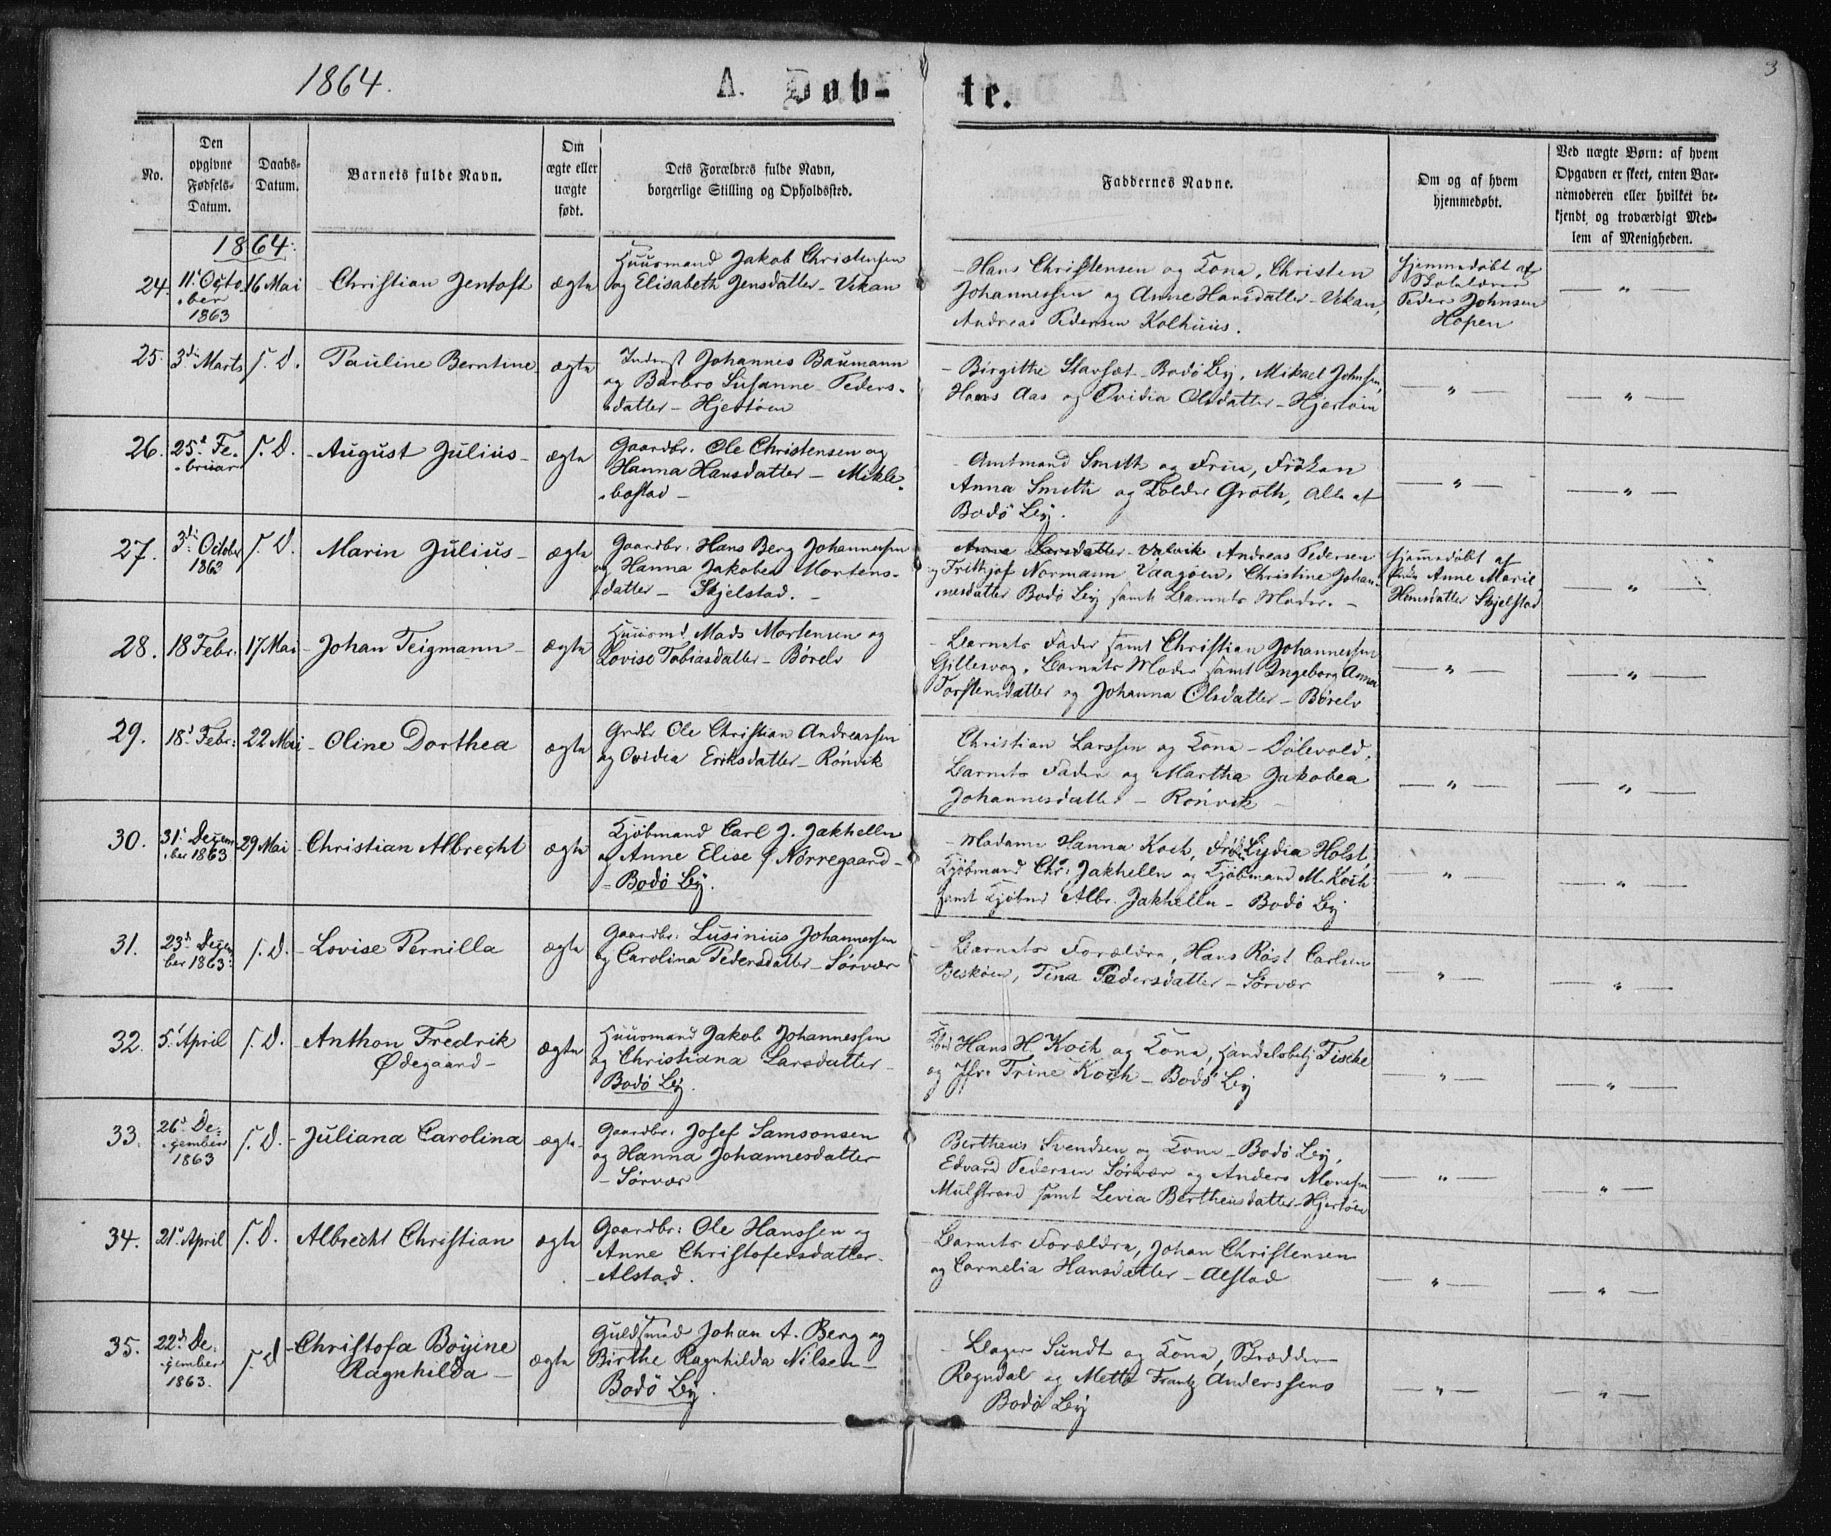 1864.
A. Døb-
te.
3
No.
Den opgivne Fødsels-Datum.
Daabs-Datum.
Barnets fulde Navn.
Om ægte eller uægte født.
Dets Forældres fulde Navn, borgerlige Stilling og Opholdssted.
Faddernes Navne.
Om og af hvem hjemmedøbt.
Ved uægte Børn: af hvem Opgaven er skeet, enten Barnemoderen eller hvilket bekjendt og troværdigt Medlem af Menigheden.
1864.
24. 11' Octo-
ber
1863
16 Mai
Christian Jentoft
ægte
Huusmand Jakob Christensen
og Elisabeth Jensdatter - Vikan
- Hans Christensen og Kona, Christen
Johannessen og Anne Hansdatter - Vikan,
Andreas Pedersen Kolhuus.
Hjemmedøbt af
Skolelærer
Peder Johnsen
Hopen
- " -
25. 3di Marts
s. D.
Pauline Berntine
ægte
Inderst Johannes Baumann
og Barbro Susanne Peders-
datter - Hjertøen
- Birgithe Stavsæt - Bodø By, Mikael Johnsen,
Hans Aas og Ovidia Olsdatter - Hjertøen
- " -
- " -
26. 25' Fe-
bruar
s. D.
- August Julius -
ægte
Gaardbr. Ole Christensen og
Hanna Hansdatter - Mikle-
bostad -
- Amtmand Smith og Frue, Frøken
Anna Smith og Groth, alle af
Bodø By.
- " -
- " -
27. 3di October
1863
s. D.
Marin Julius -
ægte
Gaardbr. Hans Berg Johannessen
og Hanna Jakobea Mortens-
datter - Skjelstad. -
Anne Larsdatter - Valvik Andreas Pedersen
og Frithjof Normann Vaagøen, Christine Johan-
nesdatter Bodø By samt Barnets Moder. -
Hjemmedøbt af
Anne Marie
Hansdatter Skjelstad
- " -
28. 18 Febr:
17 Mai
- Johan Teigmann -
ægte
Huusmd Mads Mortensen og
Lovise Tobiasdatter - Børelv
- Barnets Fader samt Christian Johannessen
Gillesvog, Barnets Moder samt Ingeborg Anna
Torstensdatter og Johanna Olsdatter - Børelv
- " -
- " -
29. 18' Febr:
22 Mai
- Oline Dorthea
ægte
Grdbr Ole Christian Andreassen
og Ovidia Eriksdatter - Rønvik
Christian Larssen og Kona - Dølevold,
Barnets Fader og Martha Jakobea
Johannesdatter - Rønvik -
- " -
- " -
30. 31' Decem-
ber 1863
29 Mai
- Christian Albrecht
ægte
Kjøbmand Carl J. Jakhelln
og Anne Elise f Nørregaard -
- Bodø By.
- Madame Hanna Koch, Frøk. Lydia Holst,
Kjøbmand Chr: Jakhelln og Kjøbmand M. Koch
samt Kjøbmd Albr. Jakhelln - Bodø By
- " -
- " -
31. 23d Decem-
ber 1863.
s. D.
- Lovise Pernilla
ægte
Gaardbr: Lusinius Johannessen
og Carolina Pedersdatter - Sørvær
- Barnets Forældre, Hans Røst Carlsen
Beskøen, Tina Pedersdatter - Sørvær
- " -
- " -
32. 5' April
s. D.
- Anthon Fredrik
Ødegaard -
ægte
Huusmand Jakob Johannessen
og Christiana Larsdatter -
Bodø By.
Kbmd Hans H. Koch og Kona, Handelsbetj Fische
og Jfr: Trine Koch - Bodø By
- " -
- " -
33. 26' De-
cember
1863
s. D.
- Juliana Carolina
- ægte -
Gaardbr: Josef Samsonsen
og Hanna Johannesdatter
- Sørvær
Bertheus Svendsen og Kone - Bodø By,
Edvard Pedersen Sørvær og Anders Monssen
Mulstrand samt Levia Bertheusdatter - Hjertøen
- " -
- " -
34. 21' April
s. D.
Albrecht Christian
ægte
Gaardbr: Ole Hanssen og
Anne Christofersdatter -
- Alstad.
- Barnets Forældre, Johan Christensen
og Cornelia Hansdatter - Alstad
- " -
- " -
35. 22di De-
cember
1863.
s. D
- Christofa Boyine
Ragnhilda -
ægte
Guldsmed Johan A. Berg og
Birthe Ragnhilda Nilsen -
Bodø By.
- Bager Sundt og Kona, Skrædder
Rogndal og Mette Frantz Anderssens
Bodø By
- " -
- " -